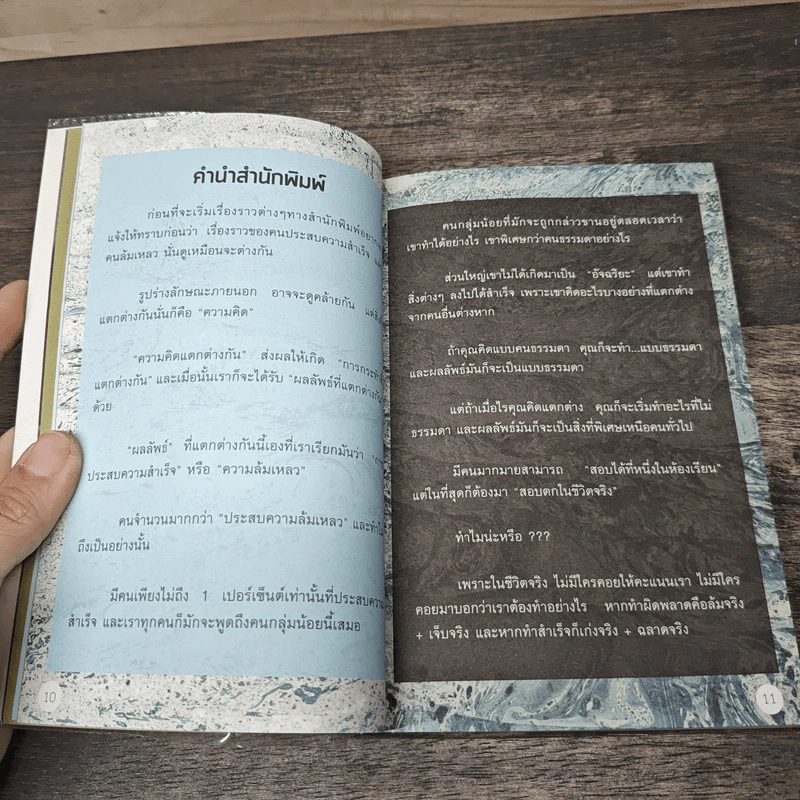 คำนำสำนักพิมพ์
ก่อนที่จะเริ่มเรื่องราวต่างๆทางสำนักพิมพ์
แจ้งให้ทราบก่อนว่า เรื่องราวของคนประสบความสำเร็จ
คนล้มเหลว นั่นดูเหมือนจะต่างกัน
รูปร่างลักษณะภายนอก อาจจะดูคล้ายกัน
แตกต่างกันนั่นก็คือ "ความคิด"
"ความคิดแตกต่างกัน" ส่งผลให้เกิด "การกระทำ
แตกต่างกัน" และเมื่อนั้นเราก็จะได้รับ "ผลลัพธ์ที่แตกต่างกัน
ด้วย
"ผลลัพธ์" ที่แตกต่างกันนี้เองที่เราเรียกมันว่า
ประสบความสำเร็จ" หรือ "ความล้มเหลว"
คนจำนวนมากกว่า "ประสบความล้มเหลว" และทำไม
ถึงเป็นอย่างนั้น
มีคนเพียงไม่ถึง 1 เปอร์เซ็นต์เท่านั้นที่ประสบความ
สำเร็จ และเราทุกคนก็มักจะพูดถึงคนกลุ่มน้อยนี้เสมอ
10
คนกลุ่มน้อยที่มักจะถูกกล่าวขานอยู่ตลอดเวลาว่า
เขาทำได้อย่างไร เขาพิเศษกว่าคนธรรมดาอย่างไร
ส่วนใหญ่เขาไม่ได้เกิดมาเป็น "อัจฉริยะ" แต่เขาทำ
สิ่งต่างๆ ลงไปได้สำเร็จ เพราะเขาคิดอะไรบางอย่างที่แตกต่าง
จากคนอื่นต่างหาก
ถ้าคุณคิดแบบคนธรรมดา คุณก็จะทำ...แบบธรรมดา
และผลลัพธ์มันก็จะเป็นแบบธรรมดา
แต่ถ้าเมื่อไรคุณคิดแตกต่าง คุณก็จะเริ่มทำอะไรที่ไม่
ธรรมดา และผลลัพธ์มันก็จะเป็นสิ่งที่พิเศษเหนือคนทั่วไป
มีคนมากมายสามารถ "สอบได้ที่หนึ่งในห้องเรียน"
แต่ในที่สุดก็ต้องมา "สอบตกในชีวิตจริง"
ทำไมน่ะหรือ ???
เพราะในชีวิตจริง ไม่มีใครคอยให้คะแนนเรา ไม่มีใคร
คอยมาบอกว่าเราต้องทำอย่างไร หากทำผิดพลาดคือล้มจริง
+ เจ็บจริง และหากทำสำเร็จก็เก่งจริง + ฉลาดจริง
11